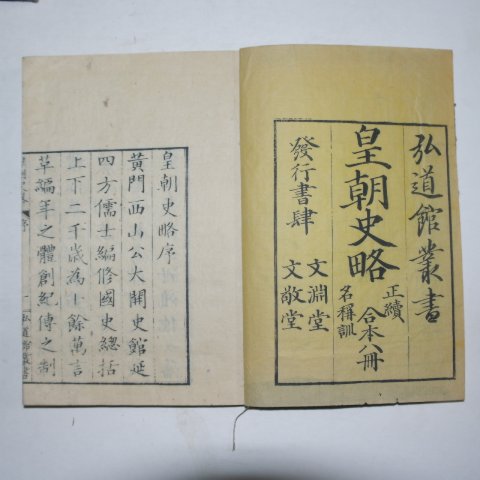 弘道館叢書
皇朝史略 正續 名稱訓 合本八冊
發行書肆 文淵堂 文敬堂
皇朝史略序
黄門西山公大開史館延
四方儒士編修國史總括
上下二千歳為士餘萬言
革編年之體創紀傳之制
弘道館叢書